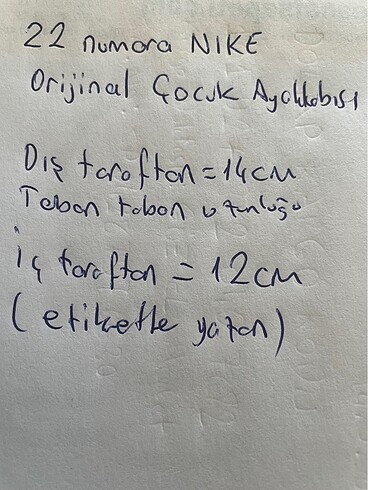 22 numara NIKE
Orijinal Çocuk Ayakkabısı
Dış taraftan = 14 cm
Taban taban uzunluğu
İç taraftan = 12 cm
(etikette yazan)